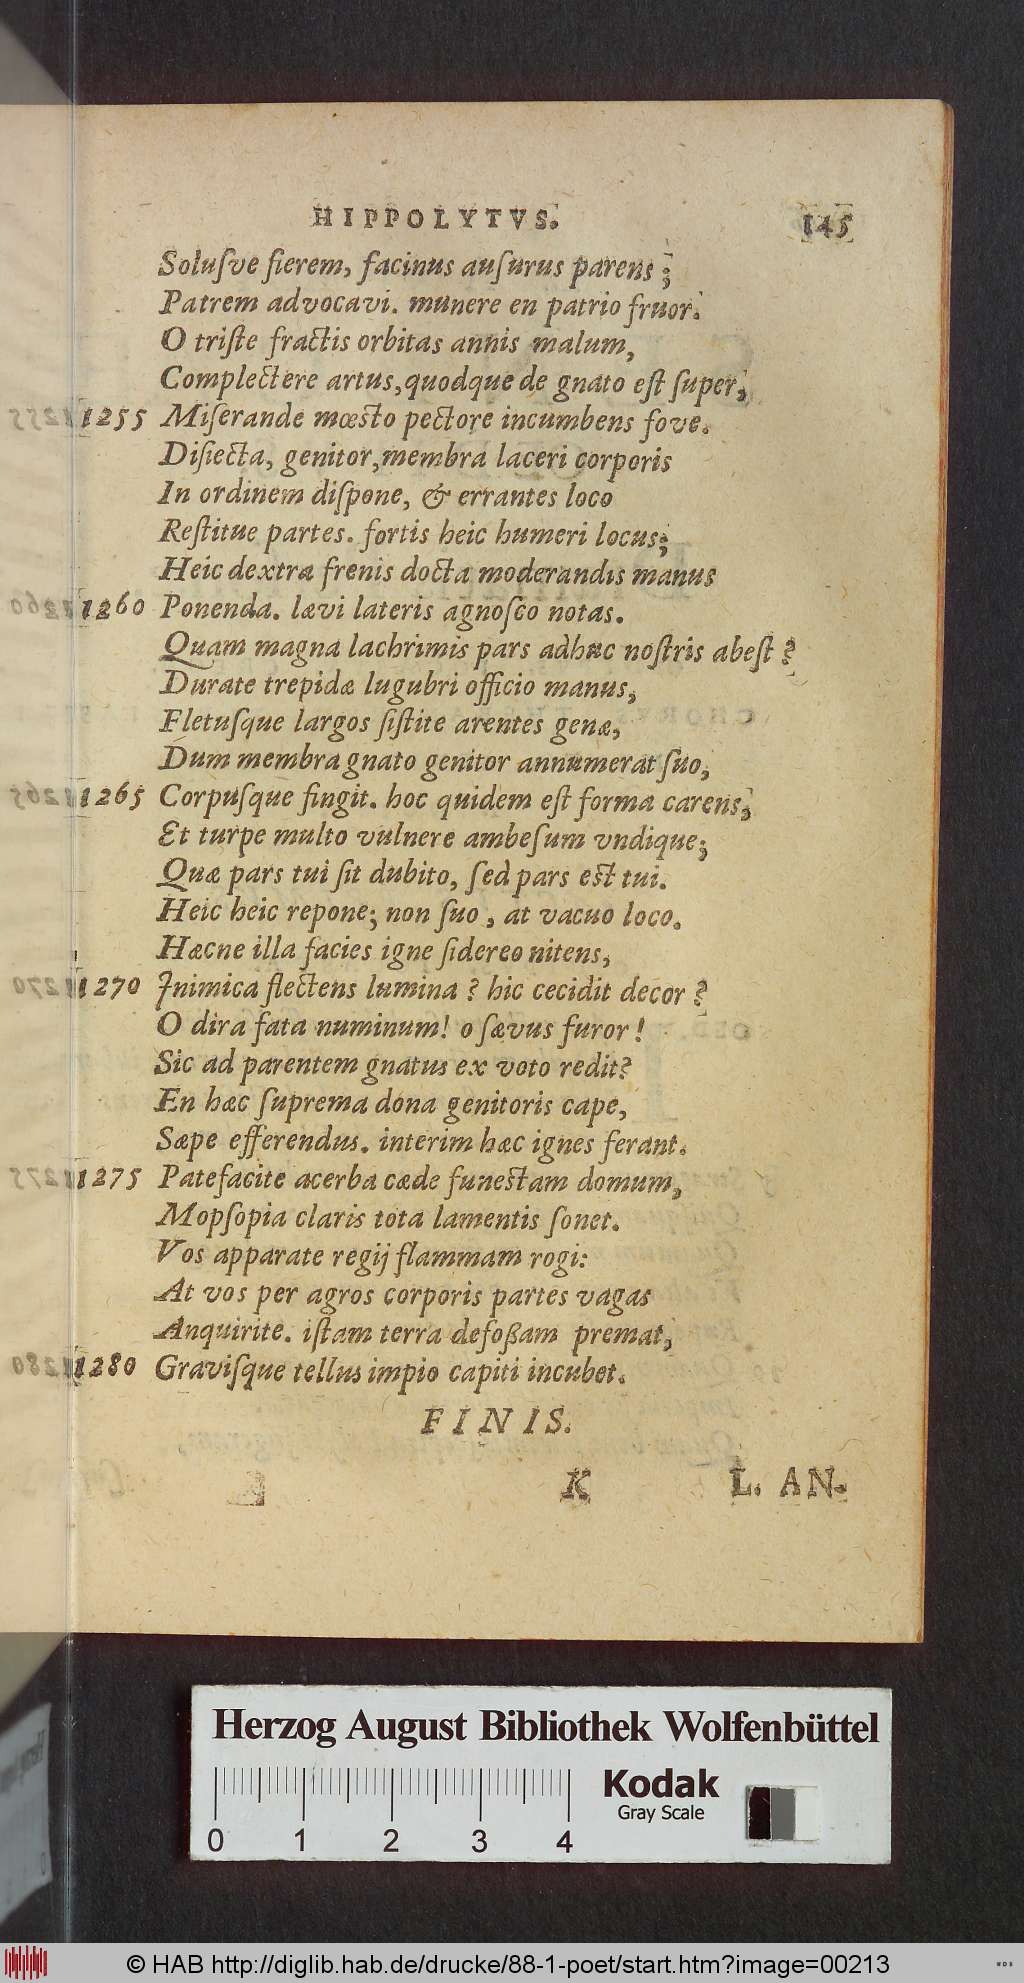 HIPPOLYTVS. 145
Soluſve fierem, facinus auſurus parens;
Patrem advocavi. munere en patrio fruor.
O triſte fractis orbitas annis malum,
Complectere artus, quodque de gnato eſt ſuper,
1255 Miſerande mœsto pectore incumbens fove.
Diſiecta, genitor, membra laceri corporis
In ordinem diſpone, & errantes loco
Reſtitue partes. fortis heic humeri locus;
Heic dextra frenis docta moderandis manus
1260 Ponenda. lævi lateris agnoſco notas.
Quam magna lachrimis pars adhuc noſtris abeſt?
Durate trepidæ lugubri officio manus,
Fletuſque largos ſiſtite arentes genæ,
Dum membra gnato genitor annumerat ſuo,
1265 Corpuſque fingit. hoc quidem eſt forma carens,
Et turpe multo vulnere ambeſum vndique;
Quæ pars tui ſit dubito, ſed pars est tui.
Heic heic repone; non ſuo, at vacuo loco.
Hæcne illa facies igne ſidereo nitens,
1270 Inimica flectens lumina? hic cecidit decor?
O dira fata numinum! o ſævus furor!
Sic ad parentem gnatus ex voto redit?
En hæc ſuprema dona genitoris cape,
Sæpe efferendus. interim hæc ignes ferant.
1275 Patefacite acerba cæde funestam domum,
Mopſopia claris tota lamentis ſonet.
Vos apparate regij flammam rogi:
At vos per agros corporis partes vagas
Anquirite. iſtam terra defoßam premat,
1280 Graviſque tellus impio capiti incubet.
FINIS.
K L. AN.
Herzog August Bibliothek Wolfenbüttel
0 1 2 3 4
Kodak
Gray Scale
© HAB http://diglib.hab.de/drucke/88-1-poet/start.htm?image=00213